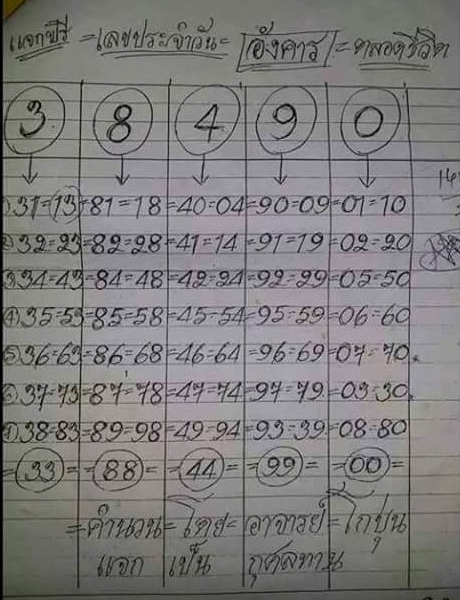 แจกฟรี =เลขประจำวัน= อังคาร =ตลอดชีวิต
3 8 4 9 0
①31=13=81=18=40=04=90=09=01=10
②32=23=82=28=41=14=91=19=02=20
③34=43=84=48=42=24=92=29=05=50
④35=53=85=58=45=54=95=59=06=60
⑤36=63=86=68=46=64=96=69=07=70.
⑥37=73=87=78=47=74=97=79=03=30.
⑦38=83=89=98=49=94=93=39=08=80
=33= =88= =44= =99= =00=
=คำนวน=โดย=อาจารย์=โกปุน
แจกเป็นกุศลทาน